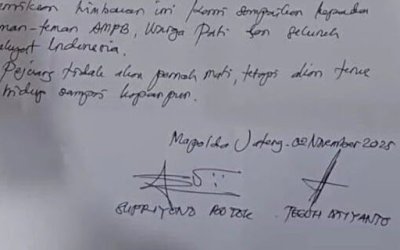 Demikian himbauan ini kami sampaikan kepada
man-teman AMPB, Warga Pati dan seluruh
akyat Indonesia.
Pejuang tidak akan pernah mati, tetapi akan terus
hidup sampai kapanpun.
Mapolda Jateng, 02 November 2025
SUPRIYONO BOTOK
TEGUH ISTIYANTO